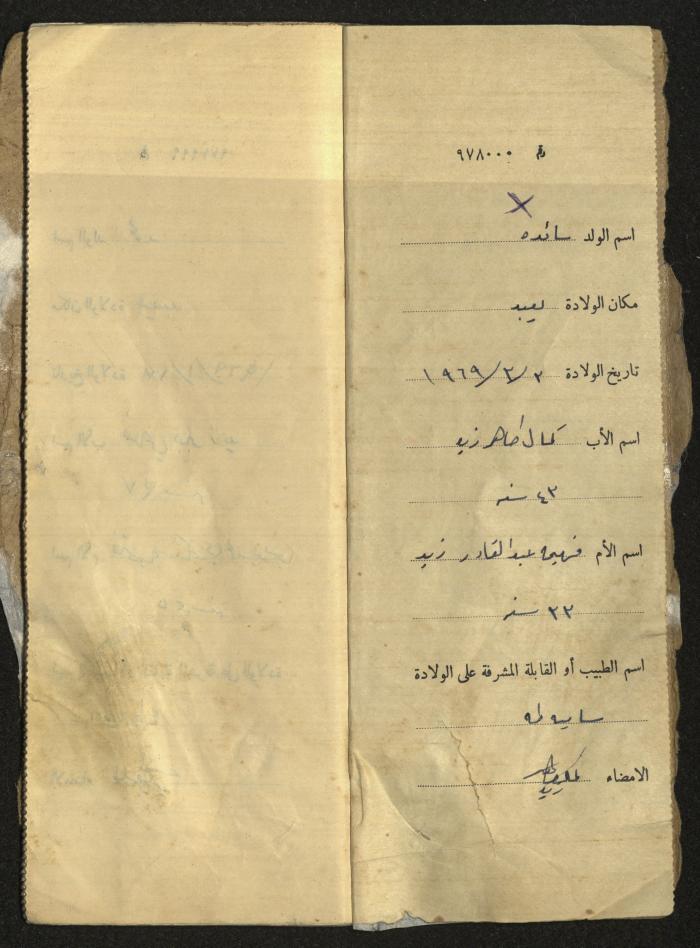 رقم ٩٧٨٠٠٠
اسم الولد سائده
مكان الولادة يعبد
تاريخ الولادة ٢/٣/١٩٦٩
اسم الأب كمال طاهر زيد
٤٣ سنه
اسم الأم فهيمه عبد القادر زيد
٣٣ سنه
اسم الطبيب أو القابلة المشرفة على الولادة
طه
الامضاء